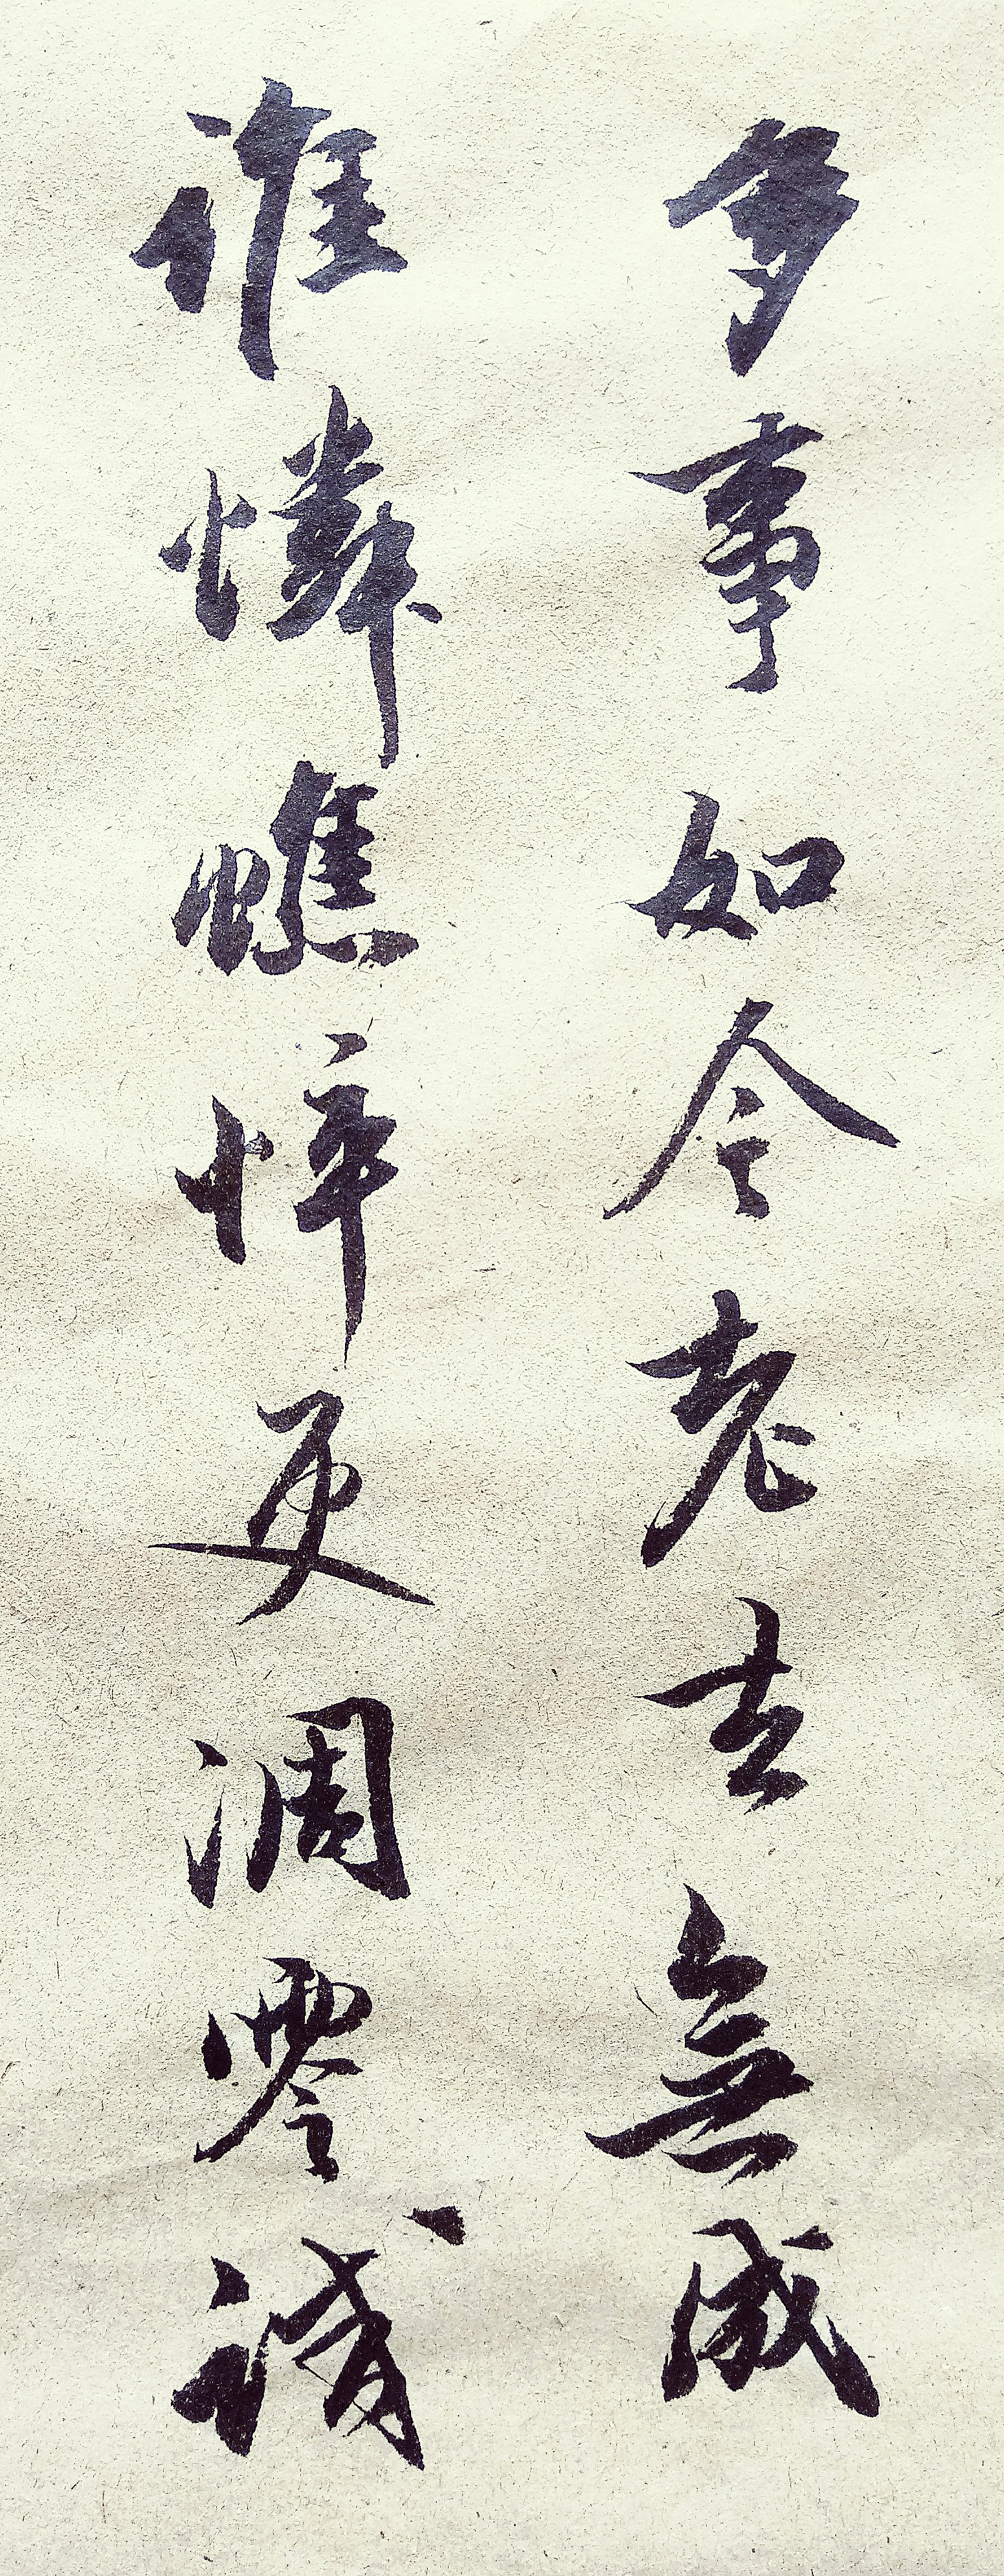 多事如今老去無成
誰憐憔悴更凋零試